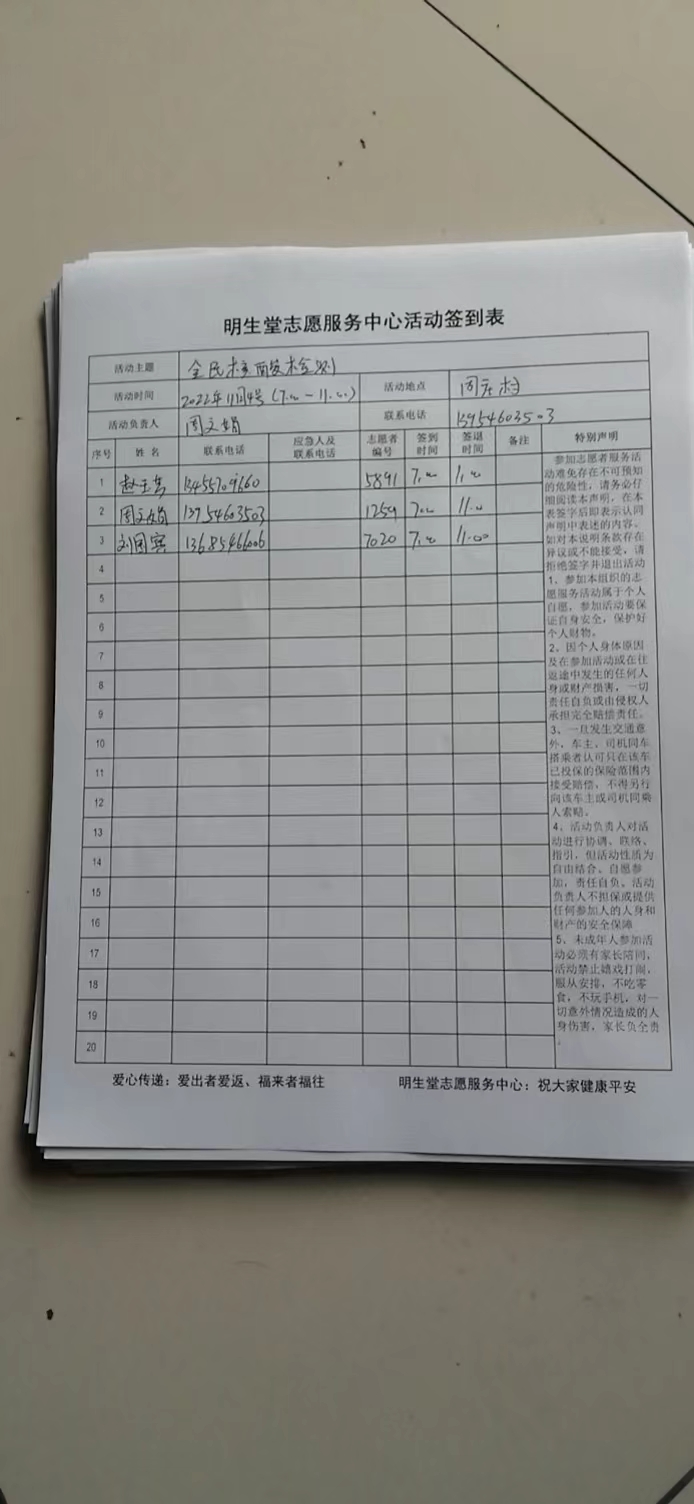 明生堂志愿服务中心活动签到表
活动主题 全民核酸检测
活动时间 2022年11月4号（7.00－11.00） 活动地点 周庄村
活动负责人 周文娟 联系电话 13954603503
序号 姓 名 联系电话 应急人及联系电话 志愿者编号 签到时间 签退时间 备注 特别声明
1 5891 7.00 11.00
2 周文娟 13954603503 1259 7.00 11.00
3 刘国宾 13685466006 7020 7.00 11.00
4
5
6
7
8
9
10
11
12
13
14
15
16
17
18
19
20
参加志愿者服务活
动难免存在不可预知
的危险性，请务必仔
细阅读本声明，在本
表签字后即表示认同
声明中表述的内容。
如对本说明条款存在
异议或不能接受，请
拒绝签字并退出活动
1、参加本组织的志
愿服务活动属于个人
自愿，参加活动要保
证自身安全，保护好
个人财物。
2、因个人身体原因
及在参加活动或在往
返途中发生的任何人
身或财产损害，一切
责任自负或由侵权人
承担完全赔偿责任。
3、一旦发生交通意
外，车主、司机同车
搭乘者认可只在该车
已投保的保险范围内
接受赔偿，不得另行
向该车主或司机同乘
人索赔。
4、活动负责人对活
动进行协调、联络、
指引，但活动性质为
自由结合、自愿参
加，责任自负、活动
负责人不担保或提供
任何参加人的人身和
财产的安全保障
5、未成年人参加活
动必须有家长陪同，
活动禁止嬉戏打闹，
服从安排，不吃零
食，不玩手机，对一
切意外情况造成的人
身伤害，家长负全责
。
爱心传递：爱出者爱返、福来者福往 明生堂志愿服务中心：祝大家健康平安